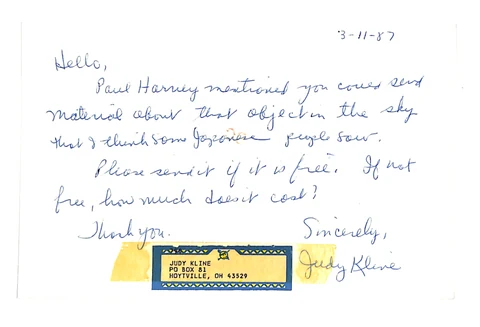 3-11-87
Hello,
Paul Harvey mentioned you could send
material about that object in the sky
that I think some Japanese people saw.
Please send it if it is free. If not
free, how much does it cost?
Thank you. Sincerely,
Judy Kline
JUDY KLINE
PO BOX 81
HOYTVILLE, OH 43529